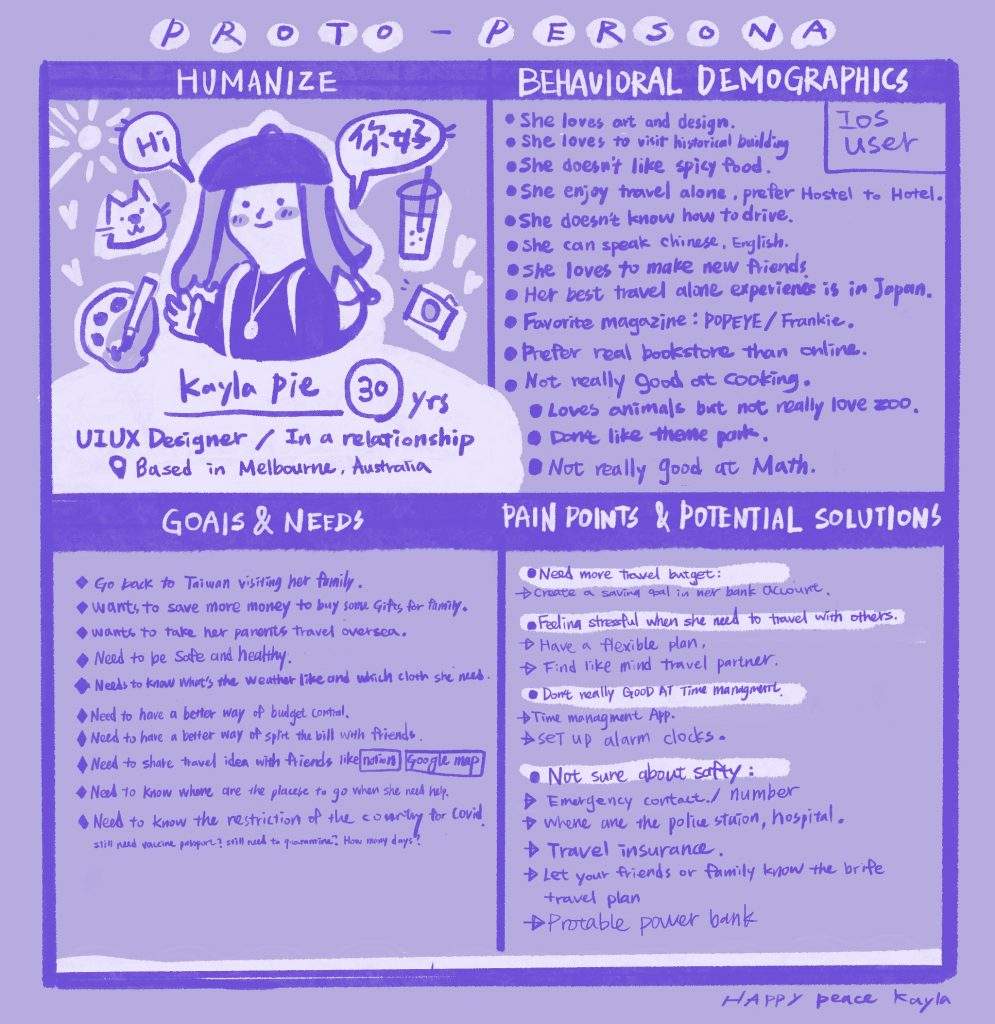 PROTO-PERSONA
HUMANIZE
Hi
你好
Kayla pie 30 yrs
UIUX Designer / In a relationship
Based in Melbourne, Australia
BEHAVIORAL DEMOGRAPHICS
Ios
user
She loves art and design.
She loves to visit historical building
She doesn't like spicy food.
She enjoy travel alone, prefer Hostel to Hotel.
She doesn't know how to drive.
She can speak chinese, English.
She loves to make new friends.
Her best travel alone experience is in Japan.
Favorite magazine: POPEYE/Frankie.
Prefer real bookstore than online.
Not really good at cooking.
Loves animals but not really love zoo.
Don't like theme park.
Not really good at Math.
GOALS & NEEDS
Go back to Taiwan visiting her family.
wants to save more money to buy some Gifts for family.
wants to take her parents travel oversea.
Need to be safe and healthy.
Needs to know what's the weather like and which cloth she need.
Need to have a better way of budget control.
Need to have a better way of split the bill with friends.
Need to share travel idea with friends like notion Google map
Need to know where are the placese to go when she need help.
Need to know the restriction of the country for Covid.
still need vaccine passport? still need to quarantine? How many days?
PAIN POINTS & POTENTIAL SOLUTIONS
Need more travel butget:
→ Create a saving goal in her bank account.
Feeling stressful when she need to travel with others.
→ Have a flexible plan,
→ Find like mind travel partner.
Don't really GOOD AT Time managment.
→ Time managment App.
→ SET UP alarm clocks.
Not sure about safty:
→ Emergency contact./ number
→ where are the police staion, hospital.
→ Travel insurance.
→ Let your friends or family know the brife
travel plan
→ Protable power bank
HAPPY peace Kayla